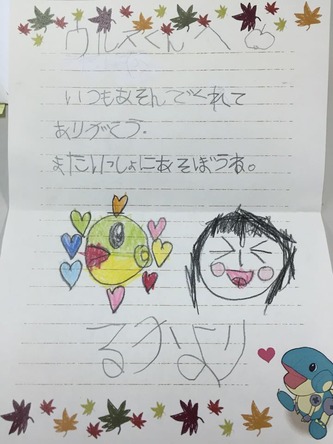 ウルスくんへ
いつもあそんでくれて
ありがとう.
またいっしょにあそぼうね。
るかより